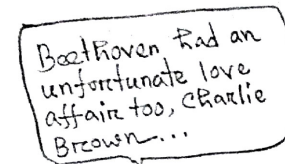 Beethoven had an
unfortunate love
affair too, Charlie
Brown...